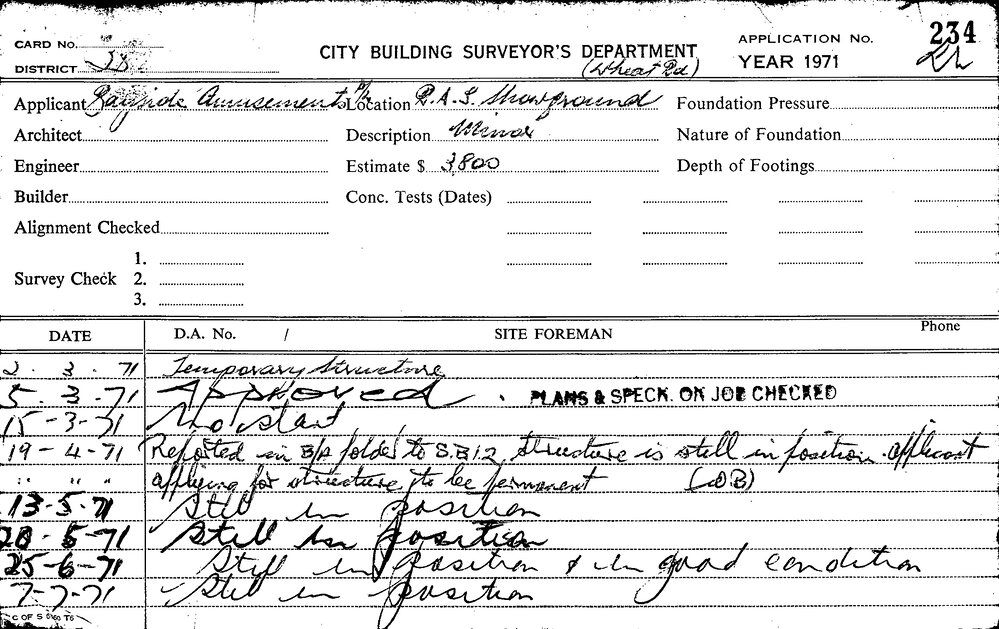 CARD No.
CITY BUILDING SURVEYOR'S DEPARTMENT
APPLICATION No. 234
DISTRICT
(Wheat Rd)
YEAR 1971
Applicant Bayside Amusements P/L Location R.A.S. Showground Foundation Pressure
Architect Description Minor Nature of Foundation
Engineer Estimate $ 3,800 Depth of Footings
Builder Conc. Tests (Dates)
Alignment Checked
1.
Survey Check 2.
3.
DATE D.A. No. / SITE FOREMAN Phone
2 . 3 . 71 Temporary Structure
5 . 3 . 71 Approved . PLANS & SPECK. ON JOB CHECKED
15 - 3 - 71 No start
19 - 4 - 71 Reported in B/A folder to S.B.I.2, structure is still in position. applicant
" " " applying for structure to be permanent
13-5-71 Still in position
28-5-71 Still in position
25-6-71 Still in position & in good condition
7-7-71 Still in position